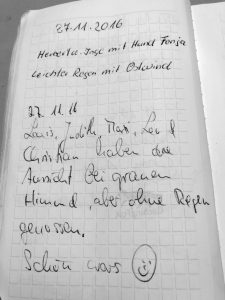 27.11.2016
Herbert u. Inge mit Hund Fonja
Leichter Regen mit Ostwind
27.11.16
Louis, Judith, Maxi, Leo &
Christian haben die
Aussicht bei grauem
Himmel, aber ohne Regen
genossen.
Schön wars ☺